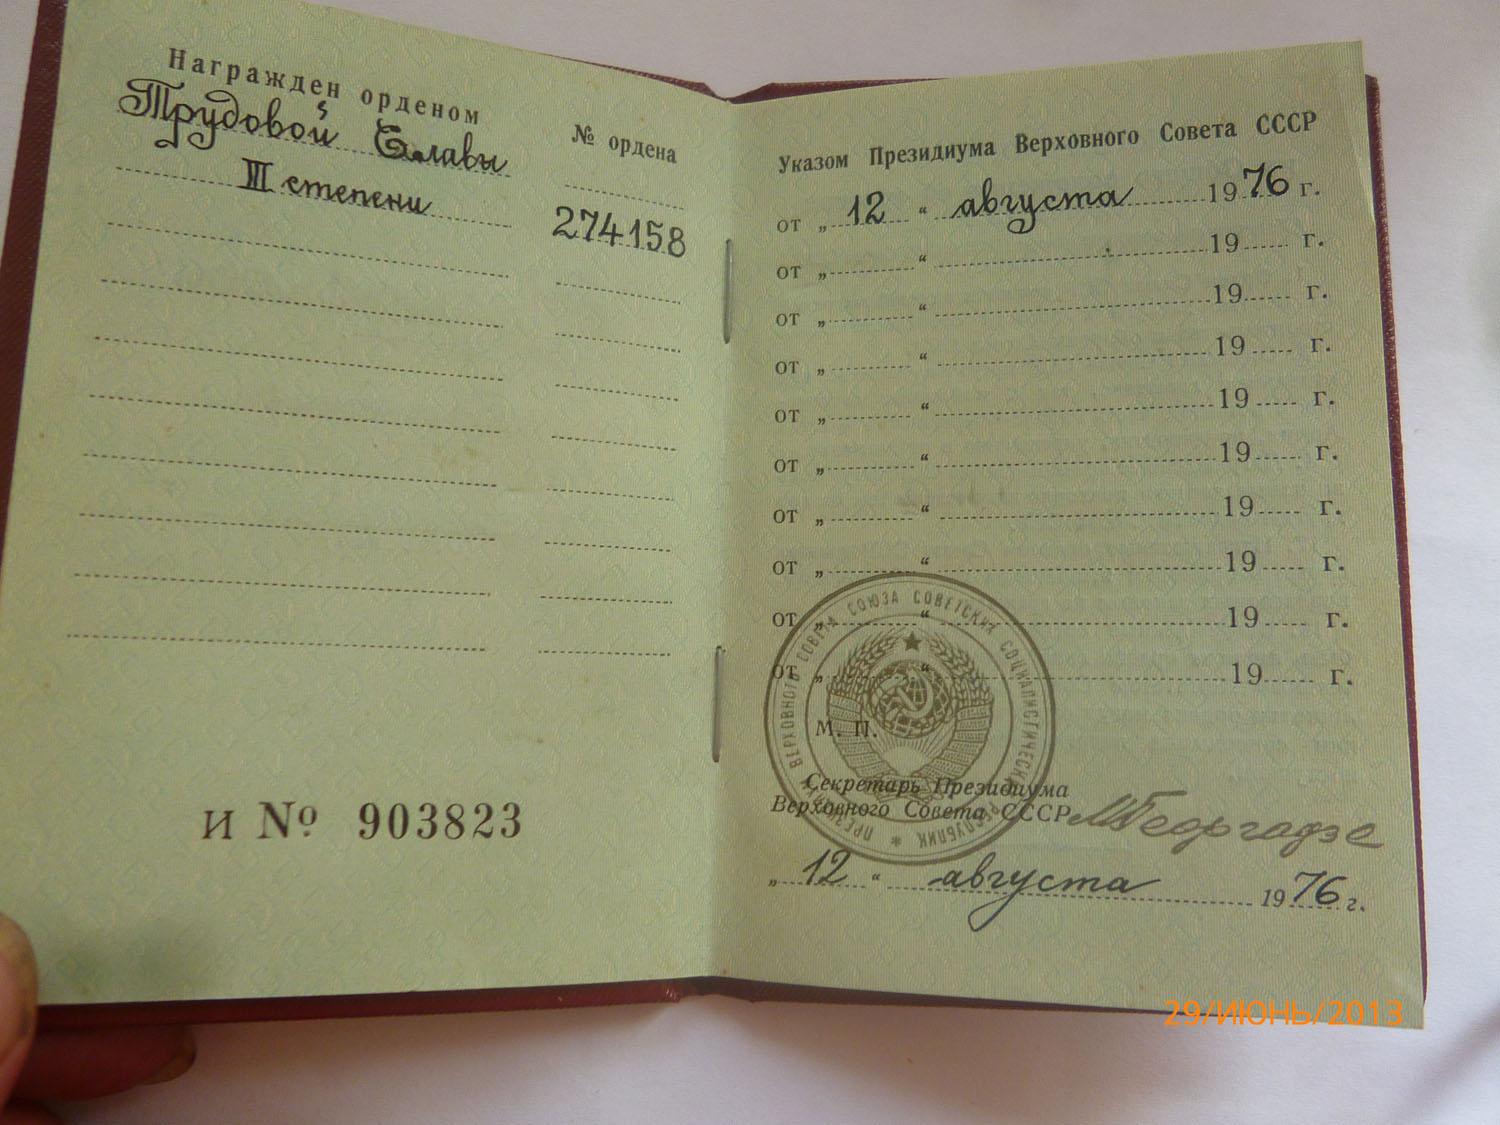 Награжден орденом
№ ордена
Трудовой Славы
III степени
274158
И № 903823
Указом Президиума Верховного Совета СССР
от „ 12 “ августа 1976 г.
от „ “ 19 г.
от „ “ 19 г.
от „ “ 19 г.
от „ “ 19 г.
от „ “ 19 г.
от „ “ 19 г.
от „ “ 19 г.
от „ “ 19 г.
от „ “ 19 г.
ПРЕЗИДИУМ ВЕРХОВНОГО СОВЕТА СОЮЗА СОВЕТСКИХ СОЦИАЛИСТИЧЕСКИХ РЕСПУБЛИК *
М. П.
Секретарь Президиума
Верховного Совета СССР МГеоргадзе
„ 12 “ августа 1976 г.
29/ИЮНЬ/2013